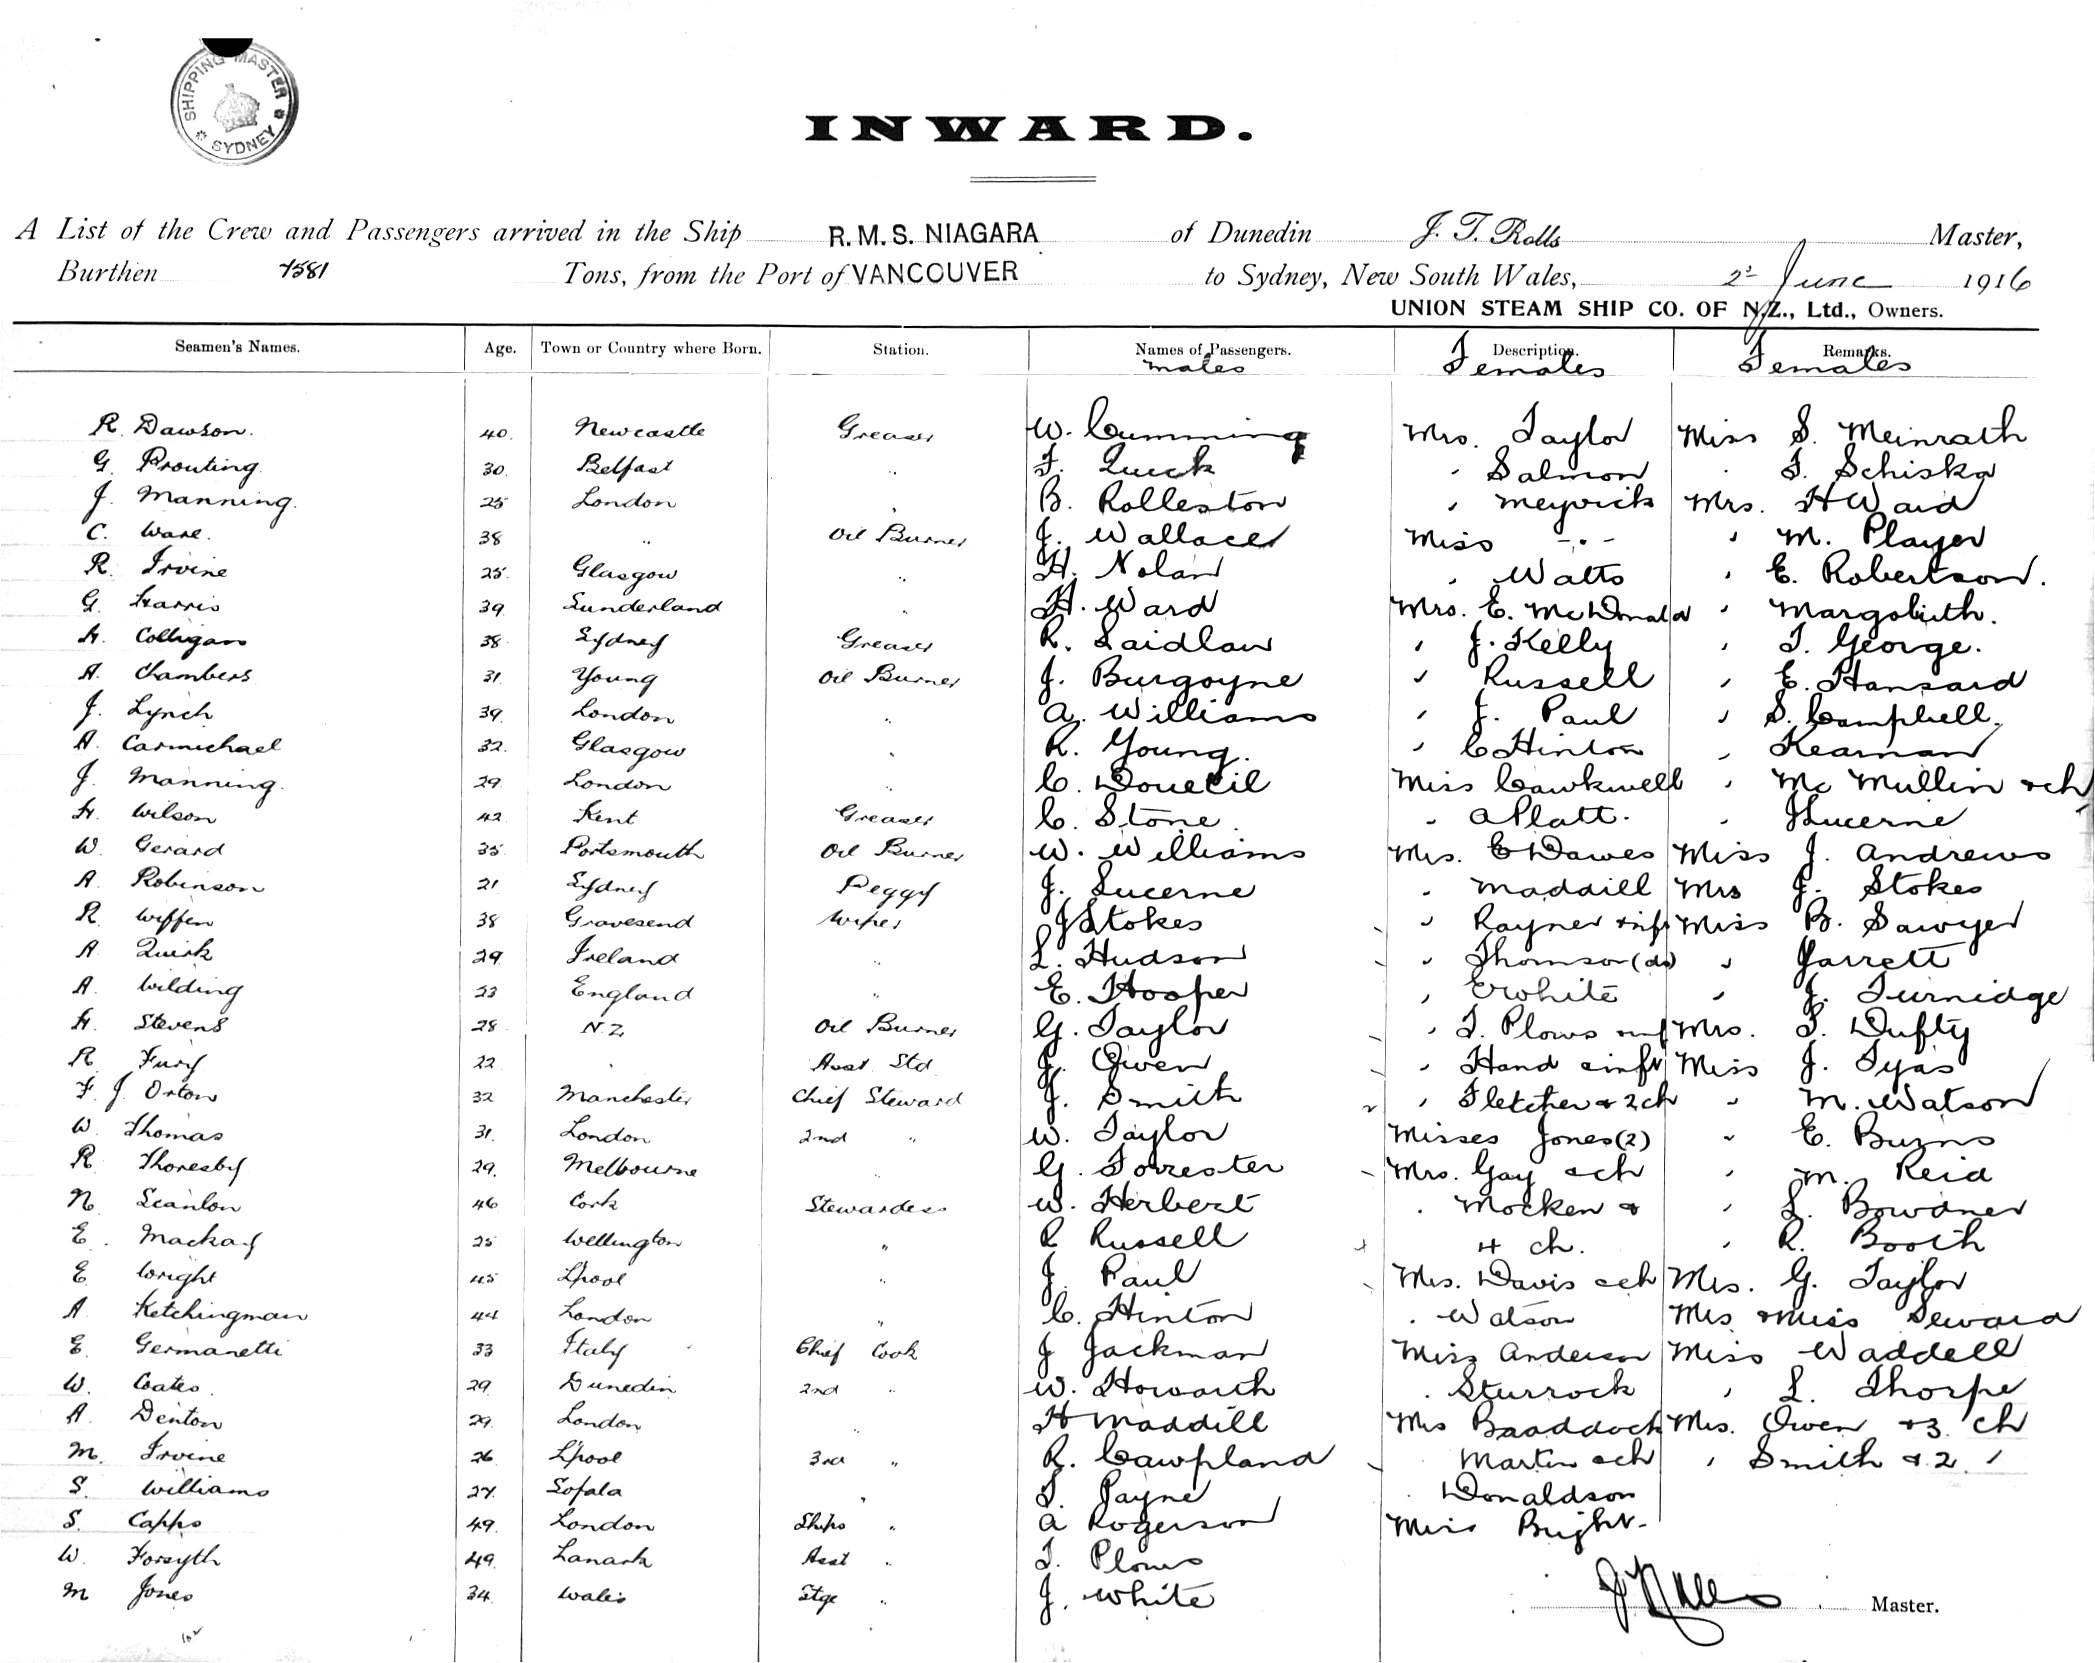 SHIPPING MASTER
SYDNEY
INWARD.
A List of the Crew and Passengers arrived in the Ship R.M.S. NIAGARA of Dunedin J. T. Rolls Master,
Burthen 7581 Tons, from the Port of VANCOUVER to Sydney, New South Wales, 2nd June 1916
UNION STEAM SHIP CO. OF N.Z., Ltd., Owners.
Seamen's Names. Age. Town or Country where Born. Station. Names of Passengers. Description. Remarks.
males Females Females
R. Dawson. 40. Newcastle Greaser W. Cumming Mrs. Taylor Miss S. Meinrath
G. Prouting. 30. Belfast " F. Quick " Salmon " F. Schiska
J. Manning. 25 London " B. Rolleston " Meyrick Mrs. H Ward
C. Ware. 38 " Oil Burner J. Wallace Miss -"- " M. Player
R. Irvine 25. Glasgow " H. Nolan " Watts " E. Robertson.
G. Harris 39 Sunderland " H. Ward Mrs. E. McDonald " Margolieth.
H. Colligan 38 Sydney Greaser R. Laidlaw " J. Kelly " T. George.
A. Chambers 31. Young Oil Burner J. Burgoyne " Russell " E. Hansard
J. Lynch 39. London " A. Williams " J. Paul " S. Campbell.
A. Carmichael 32. Glasgow " R. Young. " C Hinton " Kearnan
J. Manning. 29. London " C. Douecil Miss Cawkwell " Mc Mullin & ch
H. Wilson 42 Kent Greaser C. Stone. " A Platt. " J Lucerne
W. Gerard 35 Portsmouth Oil Burner W. Williams Mrs. E Dawes Miss J. Andrews
A. Robinson 21 Sydney Peggy J. Lucerne " Maddill Mrs J. Stokes
R. Wiffen 38 Gravesend Wiper J Stokes " Rayner & inft Miss B. Sawyer
A. Quirk 29 Ireland " L. Hudson " Thomson (do) " Jarrett
A. Wilding 23 England " E. Hooper " E White " J. Turnidge
H. Stevens 28 N Z Oil Burner G. Taylor " T. Plows & inf Mrs. T. Dufty
R. Fury 22 " Asst Std J. Owen " Hand & inft Miss J. Tyas
F. J. Orton 32 Manchester Chief Steward J. Smith " Fletcher & 2 ch " M. Watson
W. Thomas 31. London 2nd " W. Taylor Misses Jones (2) " E. Burns
R. Thoresby 29. Melbourne " G. Forrester Mrs. Gay & ch " M. Reid
N. Scanlon 46 Cork Stewardess W. Herbert " Mocken & " L. Bowdner
E. Mackay 25 Wellington " R Russell 4 ch. " R. Booth
E. Wright 45 L'pool " J. Paul Mrs. Davis & ch Mrs. G. Taylor
A. Ketchingman 44 London " C. Hinton " Watson Mrs & Miss Seward
E. Germanetti 33 Italy Chief Cook J Jackman Miss Anderson Miss Waddell
W. Coates. 29. Dunedin 2nd " W. Howarth " Sturrock " L. Thorpe
A. Denton 29. London " H Maddill Mrs Braddock Mrs. Owen & 3 ch
M. Irvine 26 L'pool 3rd " R. Cawpland " Martin & ch " Smith & 2 "
S. Williams 27. Sofala " T. Payne " Donaldson
S. Capps 49. London Ships " A Rogerson Miss Bright.
W. Forsyth 49. Lanark Asst " T. Plows
M Jones 34. Wales Stge " J. White
J T Rolls Master.